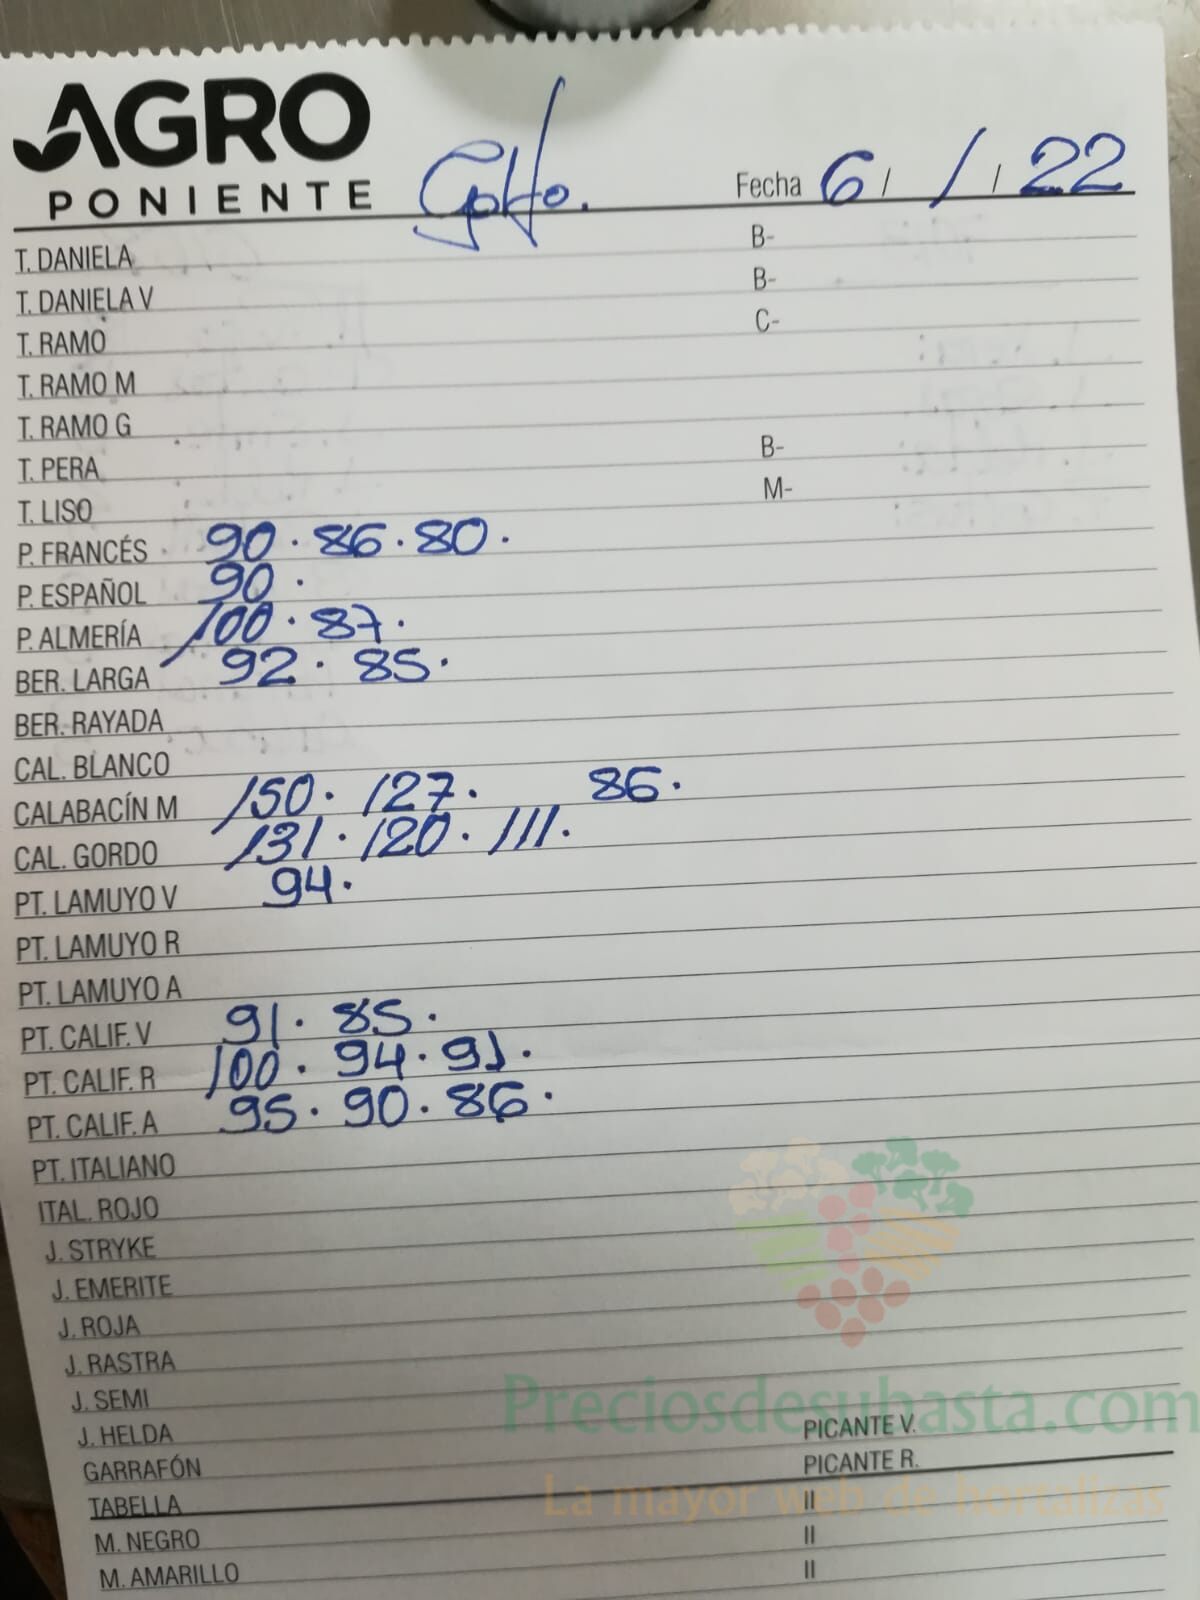 AGRO
PONIENTE
Golfo. Fecha 6 / / / 22
T. DANIELA B-
T. DANIELA V B-
T. RAMO C-
T. RAMO M
T. RAMO G
T. PERA B-
T. LISO M-
P. FRANCÉS 90 · 86 · 80 ·
P. ESPAÑOL 90 ·
P. ALMERÍA 100 · 87 ·
BER. LARGA 92 · 85 ·
BER. RAYADA
CAL. BLANCO
CALABACÍN M 150 · 127 · 86 ·
CAL. GORDO 131 · 120 · 111 ·
PT. LAMUYO V 94 ·
PT. LAMUYO R
PT. LAMUYO A
PT. CALIF. V 91 · 85 ·
PT. CALIF. R 100 · 94 · 91 ·
PT. CALIF. A 95 · 90 · 86 ·
PT. ITALIANO
ITAL. ROJO
J. STRYKE
J. EMERITE
J. ROJA
J. RASTRA
J. SEMI
Preciosdesubasta.com
J. HELDA PICANTE V.
GARRAFÓN PICANTE R.
La mayor web de hortalizas
TABELLA II
M. NEGRO II
M. AMARILLO II